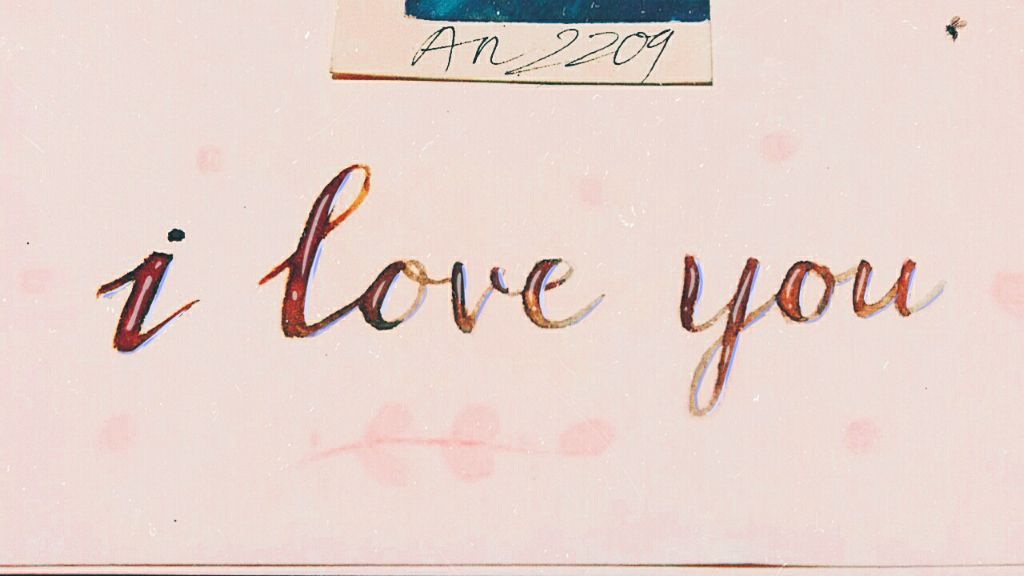 An 2209
i love you